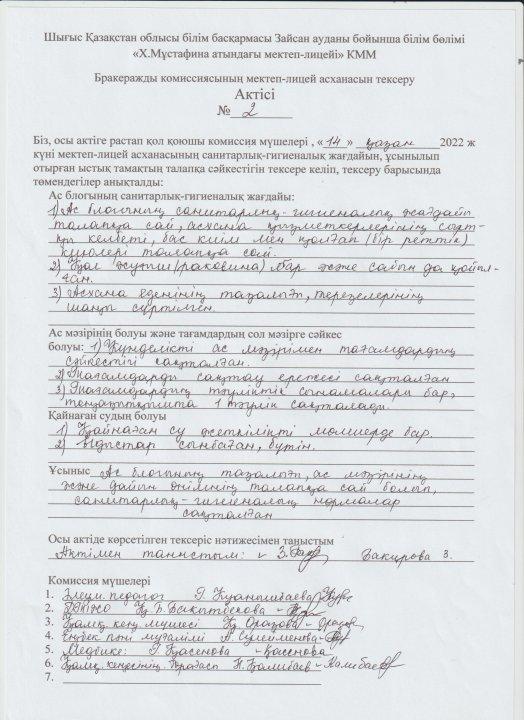 Шығыс Қазақстан облысы білім басқармасы Зайсан ауданы бойынша білім бөлімі
«Х.Мұстафина атындағы мектеп-лицейі» КММ
Бракеражды комиссиясының мектеп-лицей асханасын тексеру
Актісі
№ 2
Біз, осы актіге растап қол қоюшы комиссия мүшелері , « 14 » қазан 2022 ж
күні мектеп-лицей асханасының санитарлық-гигиеналық жағдайын, ұсынылып
отырған ыстық тамақтың талапқа сәйкестігін тексере келіп, тексеру барысында
төмендегілер анықталды:
Ас блогының санитарлық-гигиеналық жағдайы:
1) Ас блогының санитарлық-гигиеналық жағдайы
талапқа сай, асхана қызметкерлерінің сырт-
қы келбеті, бас киім мен қолғап (бір реттік)
киюлері талапқа сай.
2) Қол жуғыш (раковина) бар және сабын да қойыл-
ған.
3) Асхана еденінің тазалығы, терезелерінің
шаңы сүртілген.
Ас мәзірінің болуы және тағамдардың сол мәзірге сәйкес
болуы: 1) Күнделікті ас мәзірімен тағамдардың
сәйкестігі сақталған.
2) Тағамдарды сақтау ережесі сақталған
3) Тағамдардың тәуліктік сынамалары бар,
тоңазытқышта 1 тәулік сақталады.
Қайнаған судың болуы
1) Қайнаған су жеткілікті мөлшерде бар.
2) Ыдыстар сынбаған, бүтін.
Ұсыныс Ас блогының тазалығы, ас мәзірінің
және дайын өнімнің талапқа сай болып,
санитарлық-гигиеналық нормалар
сақталған
Осы актіде көрсетілген тексеріс нәтижесімен таныстым
Актімен таныстым: Бакирова З.
Комиссия мүшелері
1. Әлеум. педагог Г. Қуанышбаева
2. Қ. Б. Бақытбекова
3. Қамқ. кең. мүшесі Қ. Оразова
4. Еңбек пәні мұғалімі А. Сүлейменова
5. Медбике: Г. Қасенова
6. Қамқ. кеңесінің төрағасы Н. Қалибаев
7.